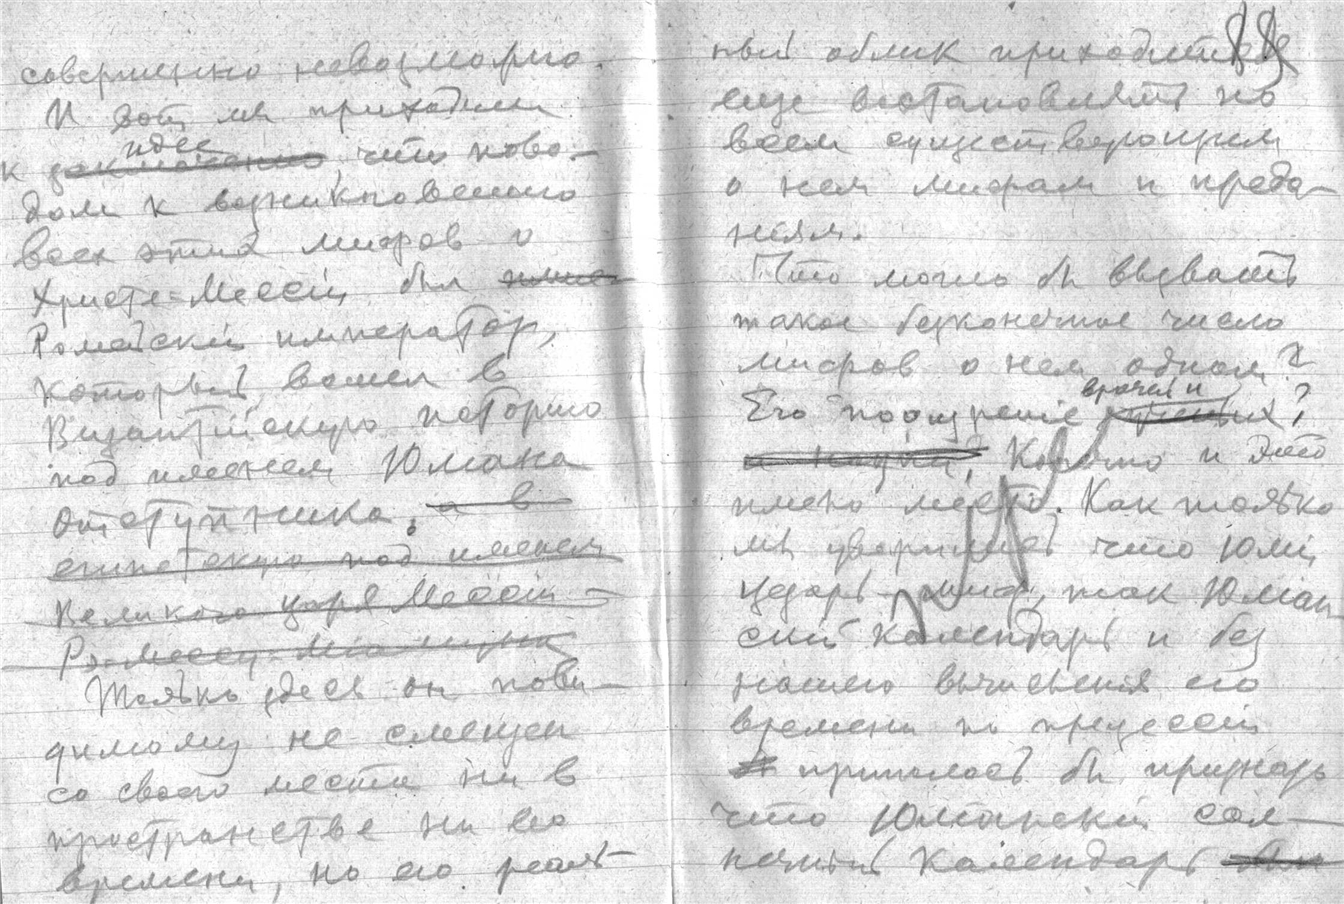 совершенно невозможно.
И вот мы приходим
идее
к заключению, что пово-
дом к возникновению
всех этих мифов о
Христе-Мессии был
Ромейский император,
который вошел в
Византийскую историю
под именем Юлиана
Отступника, а в
египетскую под именем
Великого царя Мессии
Рэ-Мессу-Миамуна
Только здесь он пови-
димому не смещен
со своего места ни в
пространстве ни во
времени, но его реаль-
88
ный облик приходится
еще востановлять по
всем существующим
о нем мифам и преда-
ниям.
Что могло бы вызвать
такое безконечное число
мифов о нем одном?
врачей и
Его поощрение ученых?
и науки? Конечно и это
имело место. Как только
мы уверились что Юлий
Цезарь - миф, так Юлиан
ский календарь и без
нашего вычисления его
времени по прецессии
пришлось бы признать
что Юлианский сол-
нечный календарь